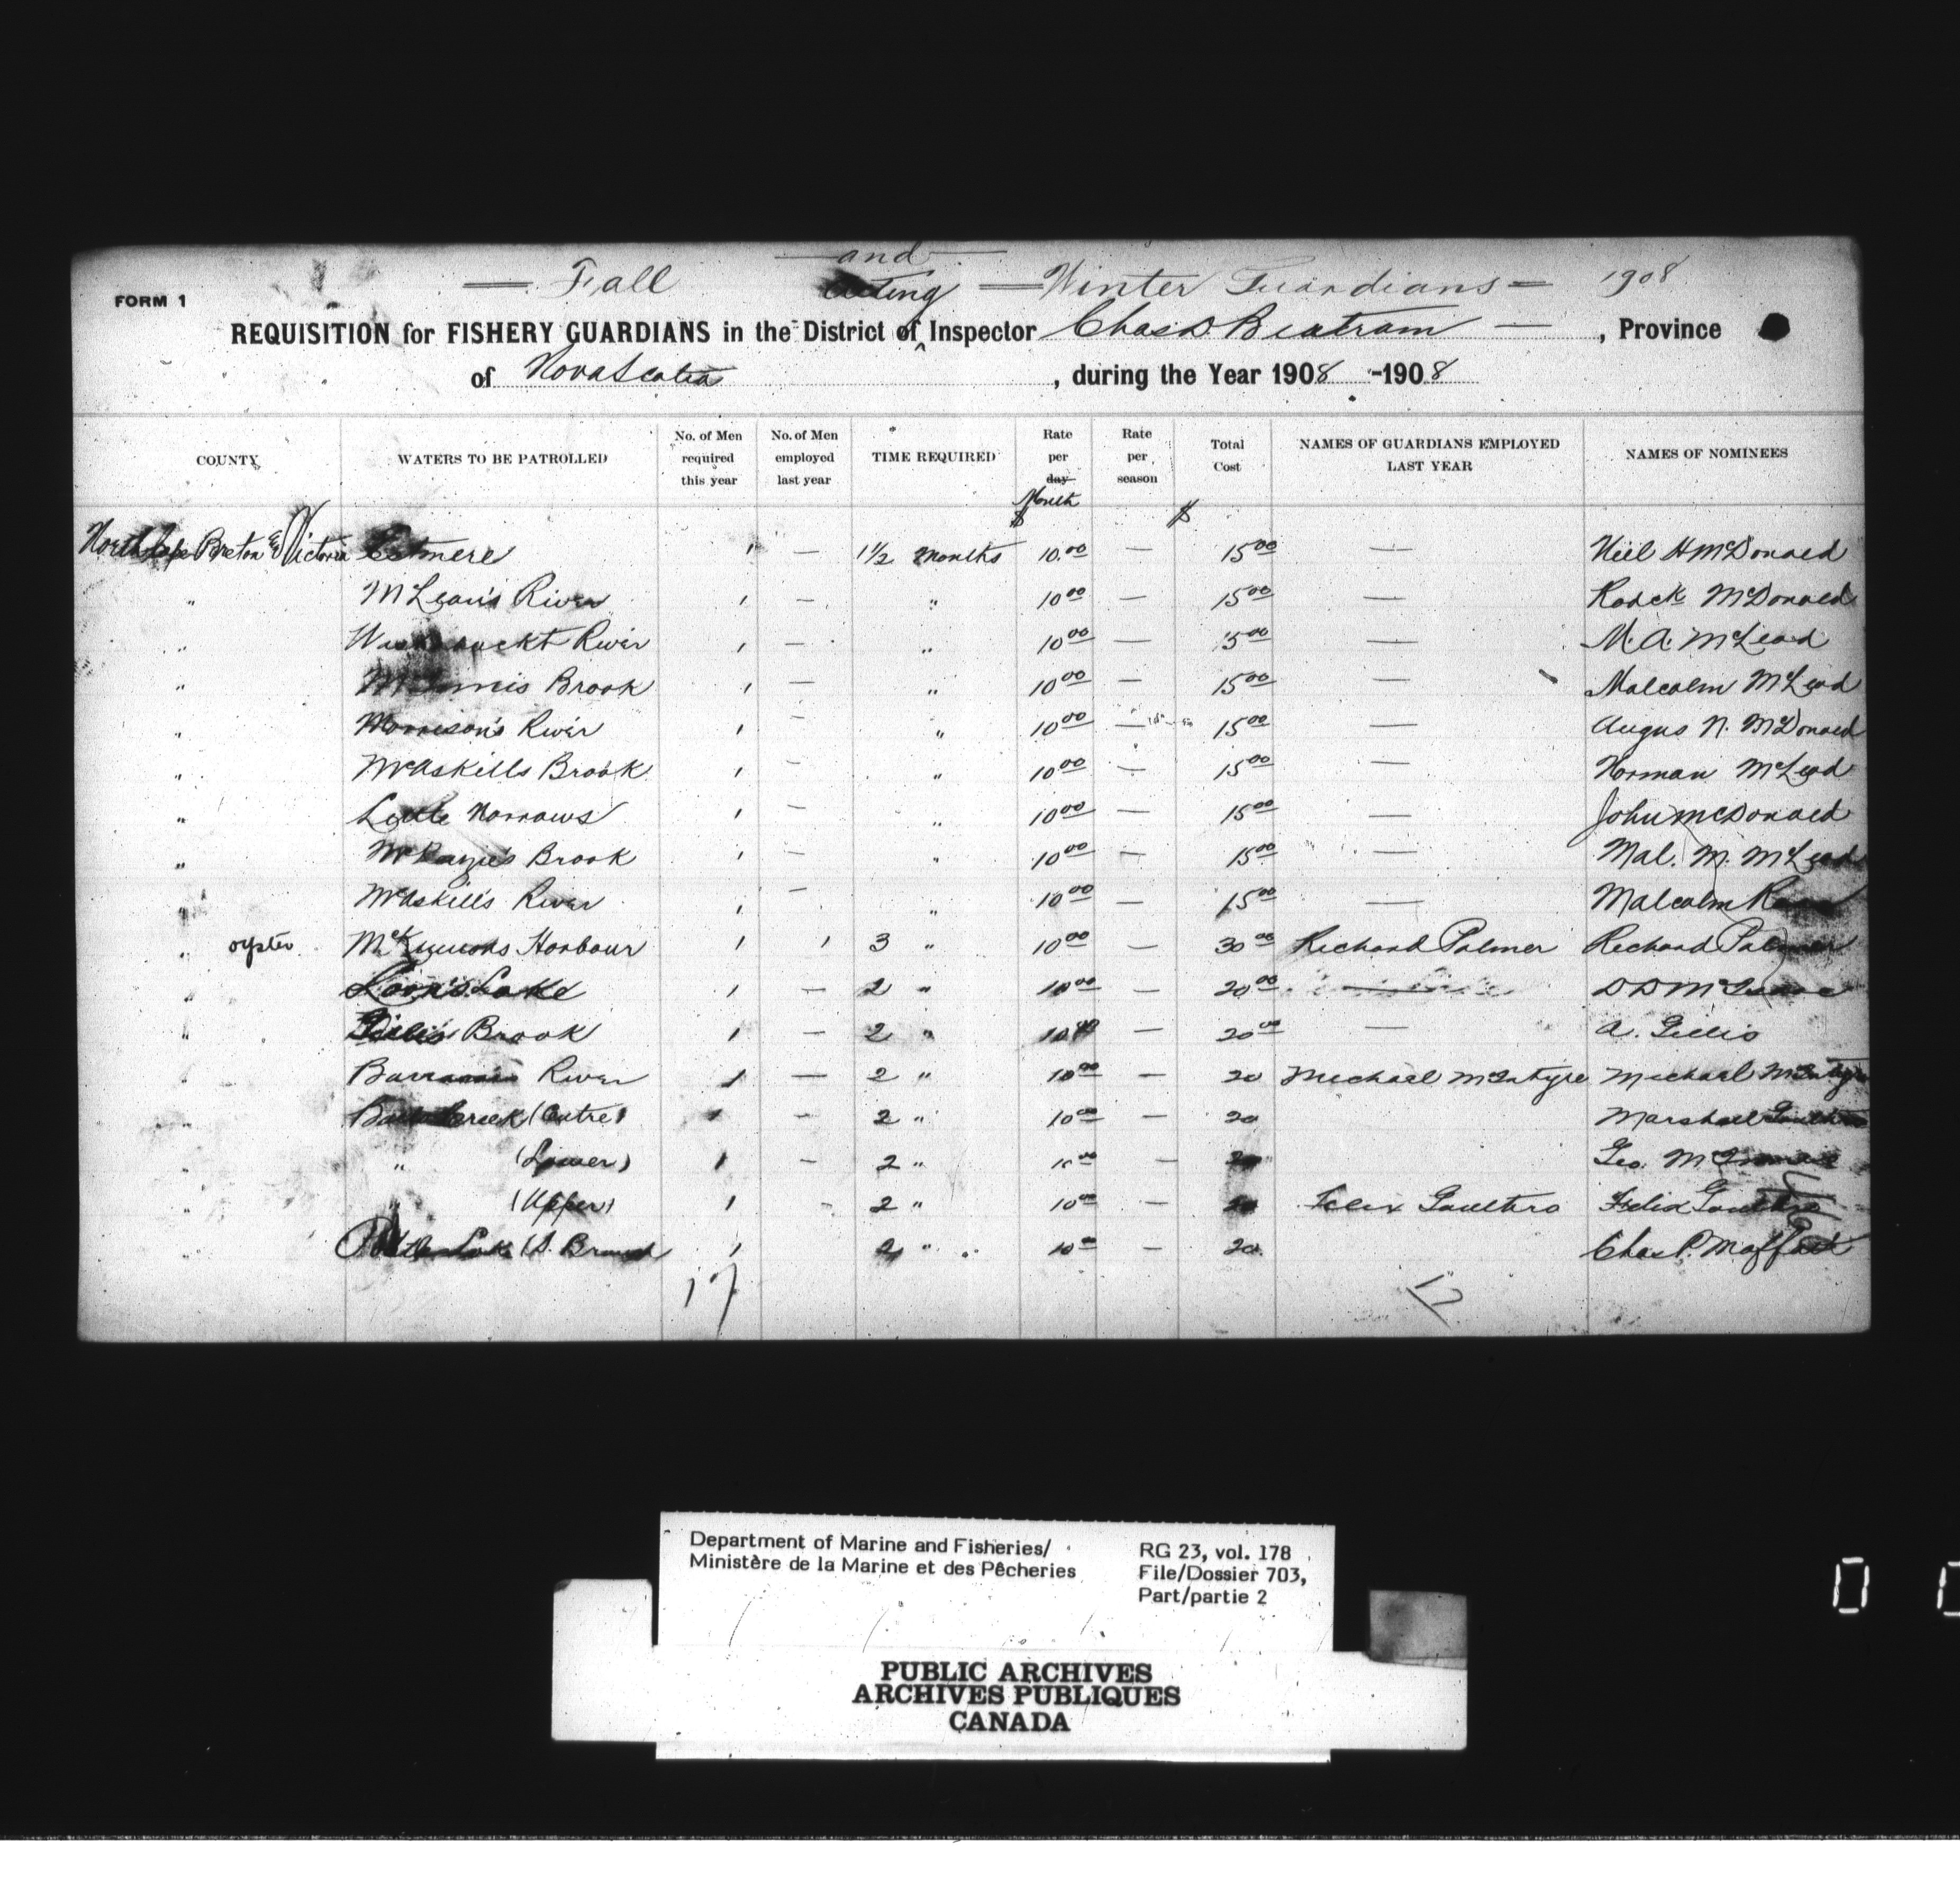 and
— Fall — Winter Guardians — 1908
FORM 1 Acting
REQUISITION for FISHERY GUARDIANS in the District of ‸ Inspector Chas D. Beatram — , Province
of Nova Scotia , during the Year 1908 -1908
COUNTY WATERS TO BE PATROLLED No. of Men required this year No. of Men employed last year TIME REQUIRED Rate per day Month $ Rate per season $ Total Cost NAMES OF GUARDIANS EMPLOYED LAST YEAR NAMES OF NOMINEES
North Cape Breton & Victoria Estmere 1 — 1½ Months 10.00 — 15 00 — Niel H McDonald
" McLean's River 1 — " 10 00 — 15 00 — Rodck McDonald
" River 1 — " 10 00 — 15 00 — M. A. McLeod
" Brook 1 — " 10 00 — 15 00 — Malcolm McLeod
" Morrison's River 1 — " 10 00 — 15 00 — Angus N. McDonald
" McAskills Brook 1 — " 10 00 — 15 00 — Norman McLeod
" Little Narrows 1 — " 10 00 — 15 00 — John McDonald
" Brook 1 — " 10 00 — 15 00 — Mal. M. McLeod
" McAskill's River 1 — " 10 00 — 15 00 — Malcolm
" oyster McKinnons Harbour 1 1 3 " 10 00 — 30 00 Richard Palmer Richard Palmer
" Lake 1 — 2 " 10 00 — 20 00 — D D
" Gillis Brook 1 — 2 " 10 00 — 20 00 — A. Gillis
" River 1 — 2 " 10 00 — 20 Michael McIntyre Michael McIntyre
" (Centre) 1 — 2 " 10 00 — 20 Marshall Gouthro
" " (Lower) 1 — 2 " 10 00 — 20 Geo.
" " (Upper) 1 — 2 " 10 00 — 20 Felix Gouthro Felix Gouthro
" Lake (S. Branch 1 2 " 10 00 — 20 Chas P. Moffatt
17 17
Department of Marine and Fisheries/ RG 23, vol. 178
Ministère de la Marine et des Pêcheries File/Dossier 703,
Part/partie 2
PUBLIC ARCHIVES
ARCHIVES PUBLIQUES
CANADA
0